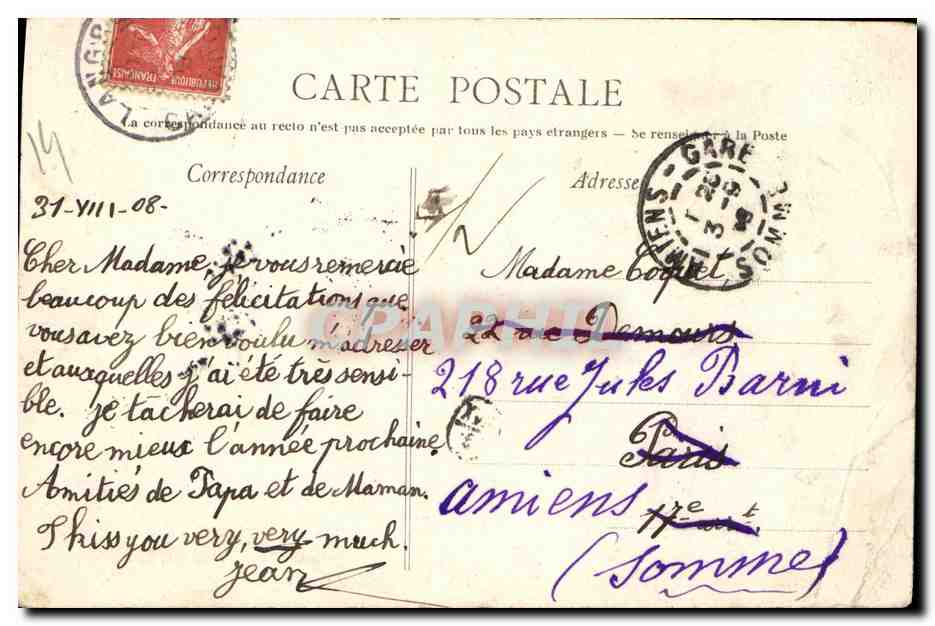 REPUBLIQUE FRANÇAISE
CARTE POSTALE
La correspondance au recto n'est pas acceptée par tous les pays étrangers — Se renseigner à la Poste
Correspondance
Adresse
AMIENS - GARE
SOMME
14
31-VIII-08-
Cher Madame, je vous remercie
beaucoup des félicitations que
vous avez bien voulu m'adresser
et auxquelles j'ai été très sensi-
ble. je tacherai de faire
encore mieux l'année prochaine.
Amitiés de Papa et de Maman.
I kiss you very, very much.
jean
Madame Coquet,
22 rue Demours
218 rue Jules Barni
Paris
amiens
17e arrt.
(Somme)
CPAPHIL